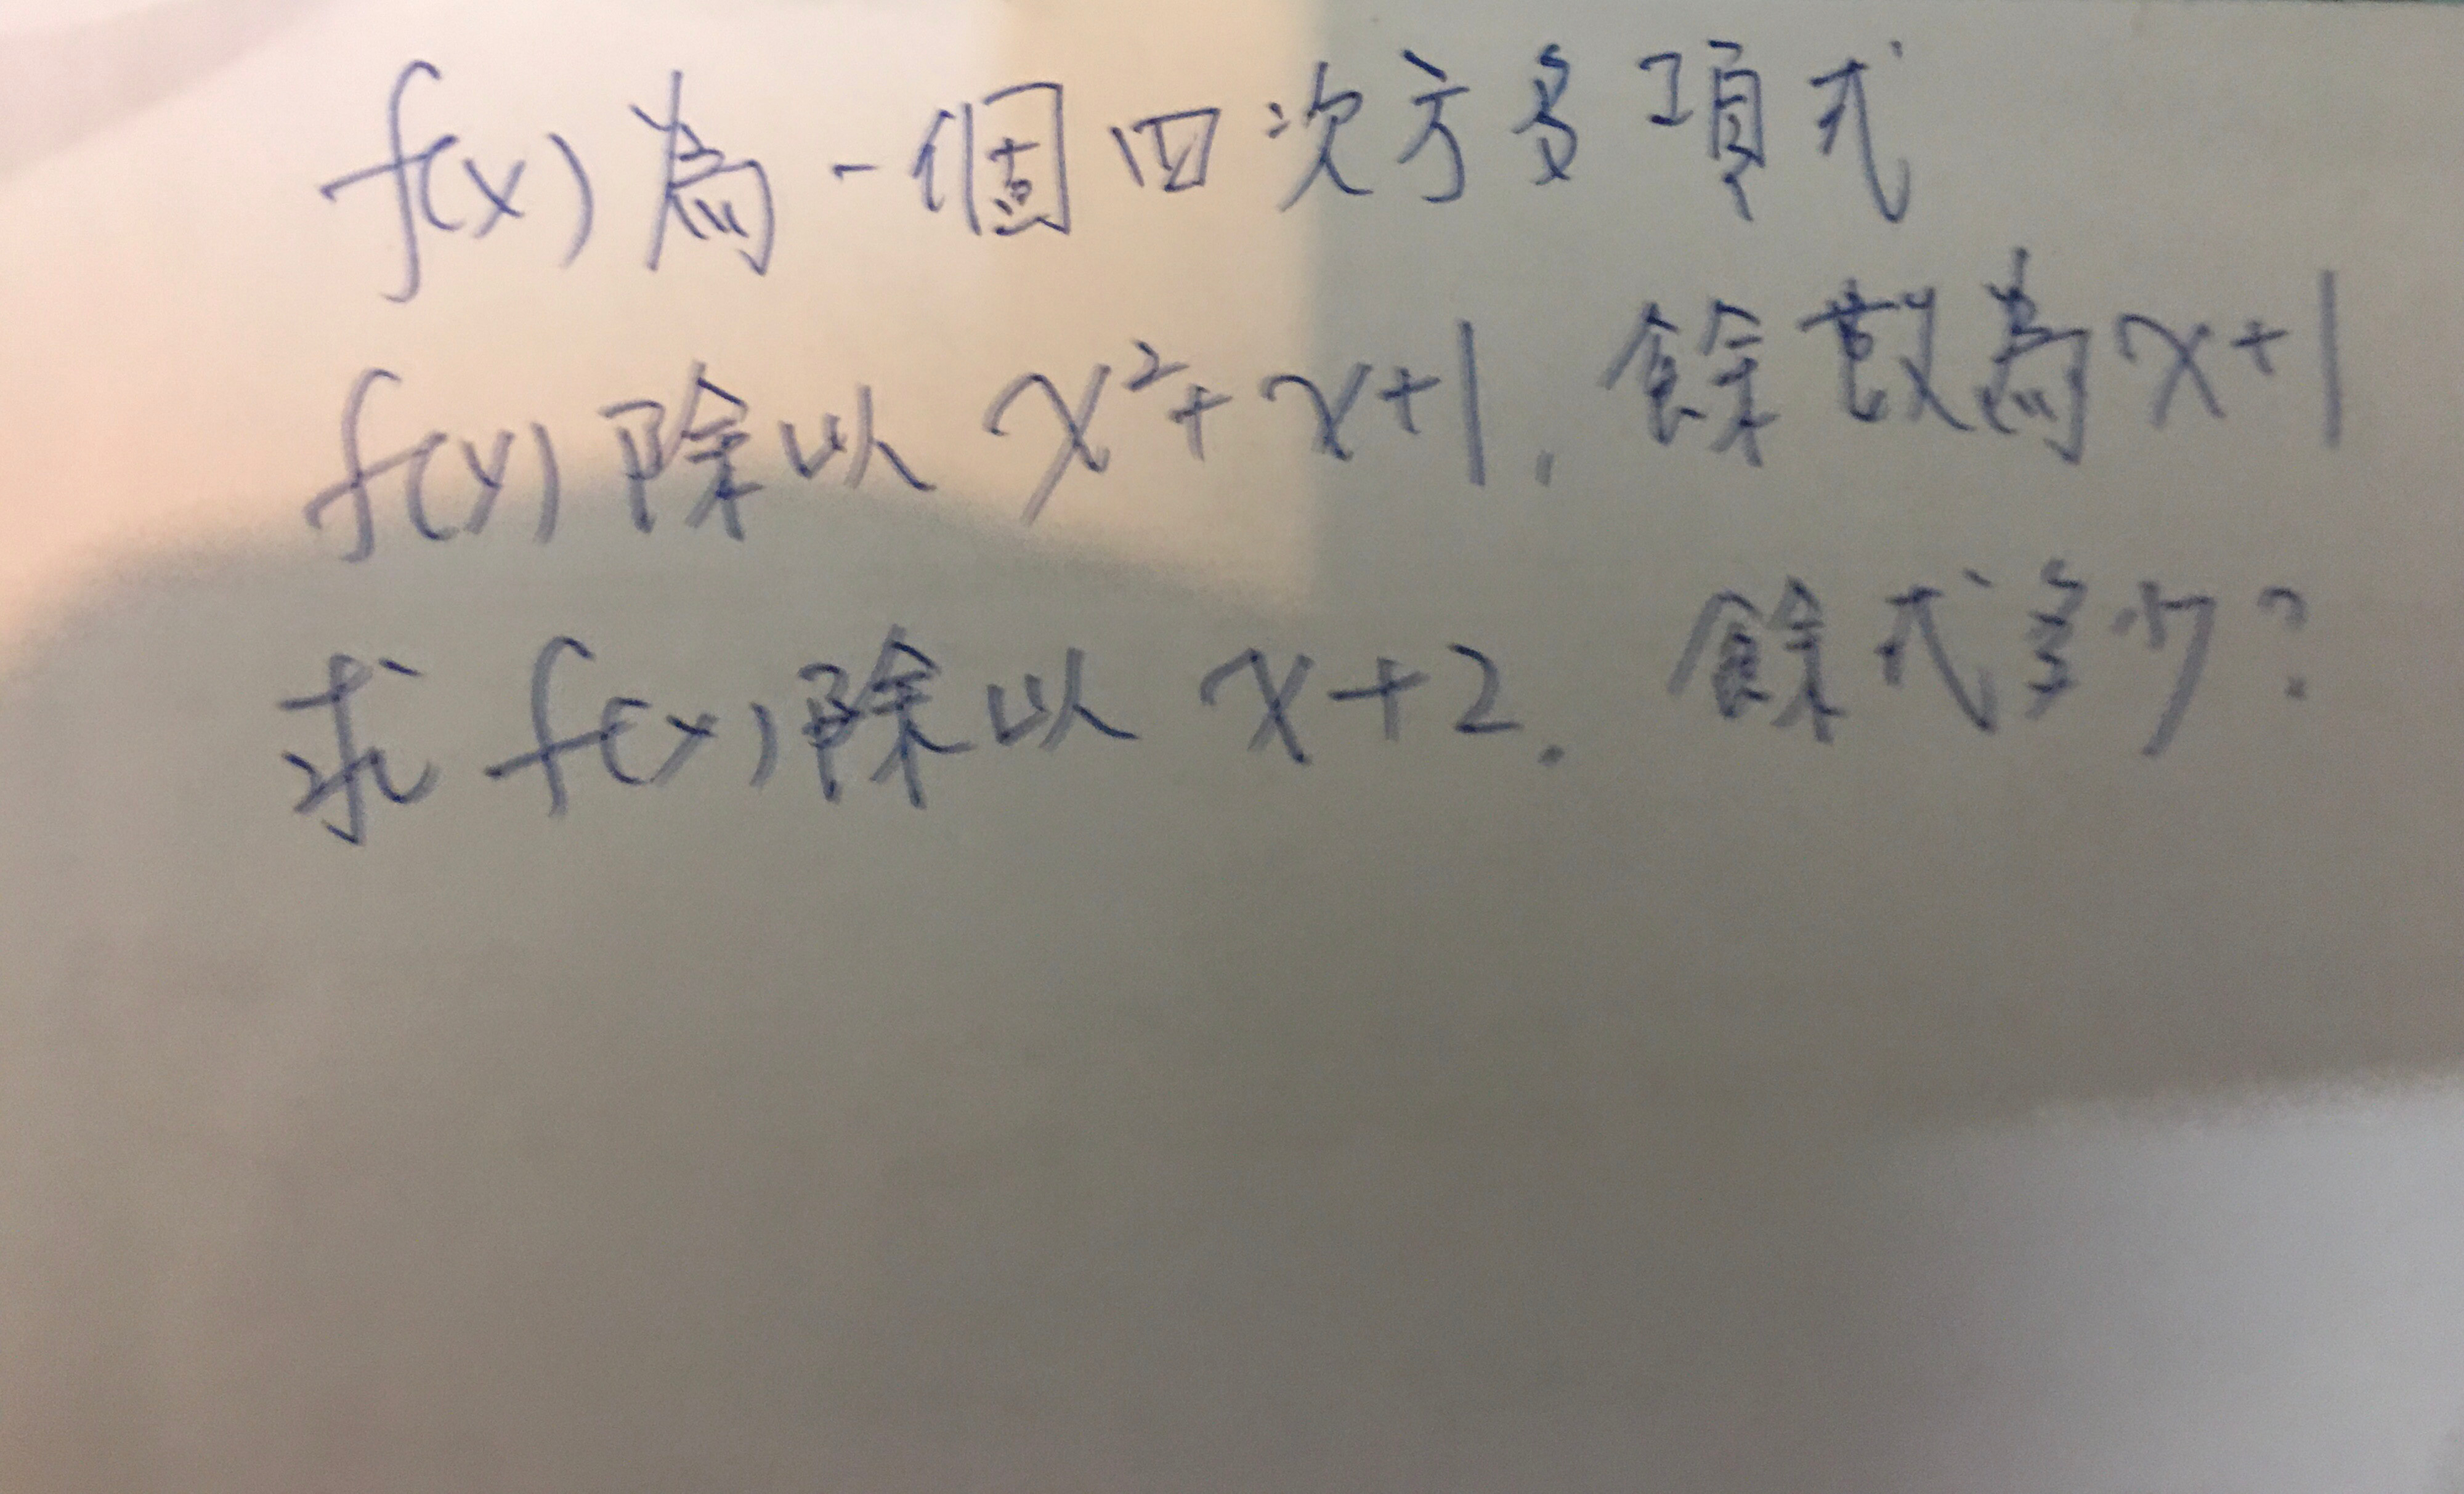 f(x)為一個四次方多項式
f(x)除以 x²+x+1. 餘數為x+1
求 f(x)除以 x+2. 餘式多少?